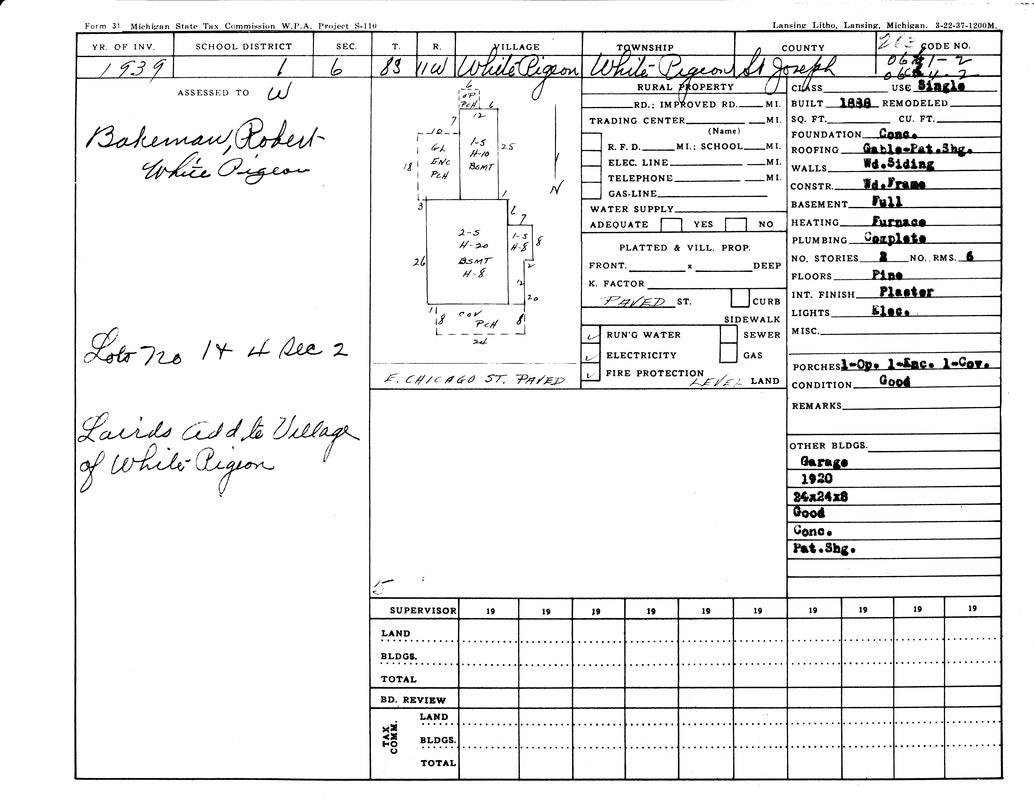 Form 31 Michigan State Tax Commission W.P.A. Project S-110
Lansing Litho, Lansing, Michigan. 3-22-37-1200M.
YR. OF INV. SCHOOL DISTRICT SEC. T. R. VILLAGE TOWNSHIP COUNTY CODE NO.
1939 1 6 8S 11W White Pigeon White Pigeon St Joseph
ASSESSED TO W
Bakeman, Robert
White Pigeon
Lots no 1 & 4 Sec 2
Lairds Add to Village
of White Pigeon
6
OP
PCH 6
12
7
10
GL
ENC
PCH
18
1-5
H-10
BSMT
25
N
3
1
6
7
2-5
H-20
BSMT
H-8
1-5
H-8
8
26
2
12
20
1
8
COV
PCH
8
E. CHICAGO ST. PAVED
RURAL PROPERTY
RD.; IMPROVED RD. MI.
TRADING CENTER MI.
(Name)
R. F. D. MI.; SCHOOL MI.
ELEC. LINE MI.
TELEPHONE MI.
GAS-LINE
WATER SUPPLY
ADEQUATE YES NO
PLATTED & VILL. PROP.
FRONT. x DEEP
K. FACTOR
PAVED ST. CURB
SIDEWALK
RUN'G WATER SEWER
ELECTRICITY GAS
FIRE PROTECTION
LEVEL LAND
CLASS USE Single
BUILT 1838 REMODELED
SQ. FT. CU. FT.
FOUNDATION Conc.
ROOFING Gable-Pat.Shg.
WALLS Wd.Siding
CONSTR. Wd.Frame
BASEMENT Full
HEATING Furnace
PLUMBING Complete
NO. STORIES 2 NO. RMS. 6
FLOORS Pine
INT. FINISH Plaster
LIGHTS Elec.
MISC.
PORCHES 1-Op. 1-Enc. 1-Cov.
CONDITION Good
REMARKS
OTHER BLDGS.
Garage
1920
24x24x8
Good
Conc.
Pat.Shg.
15
SUPERVISOR 19 19 19 19 19 19 19 19 19 19
LAND
BLDGS.
TOTAL
BD. REVIEW
TAX COMM.
LAND
BLDGS.
TOTAL